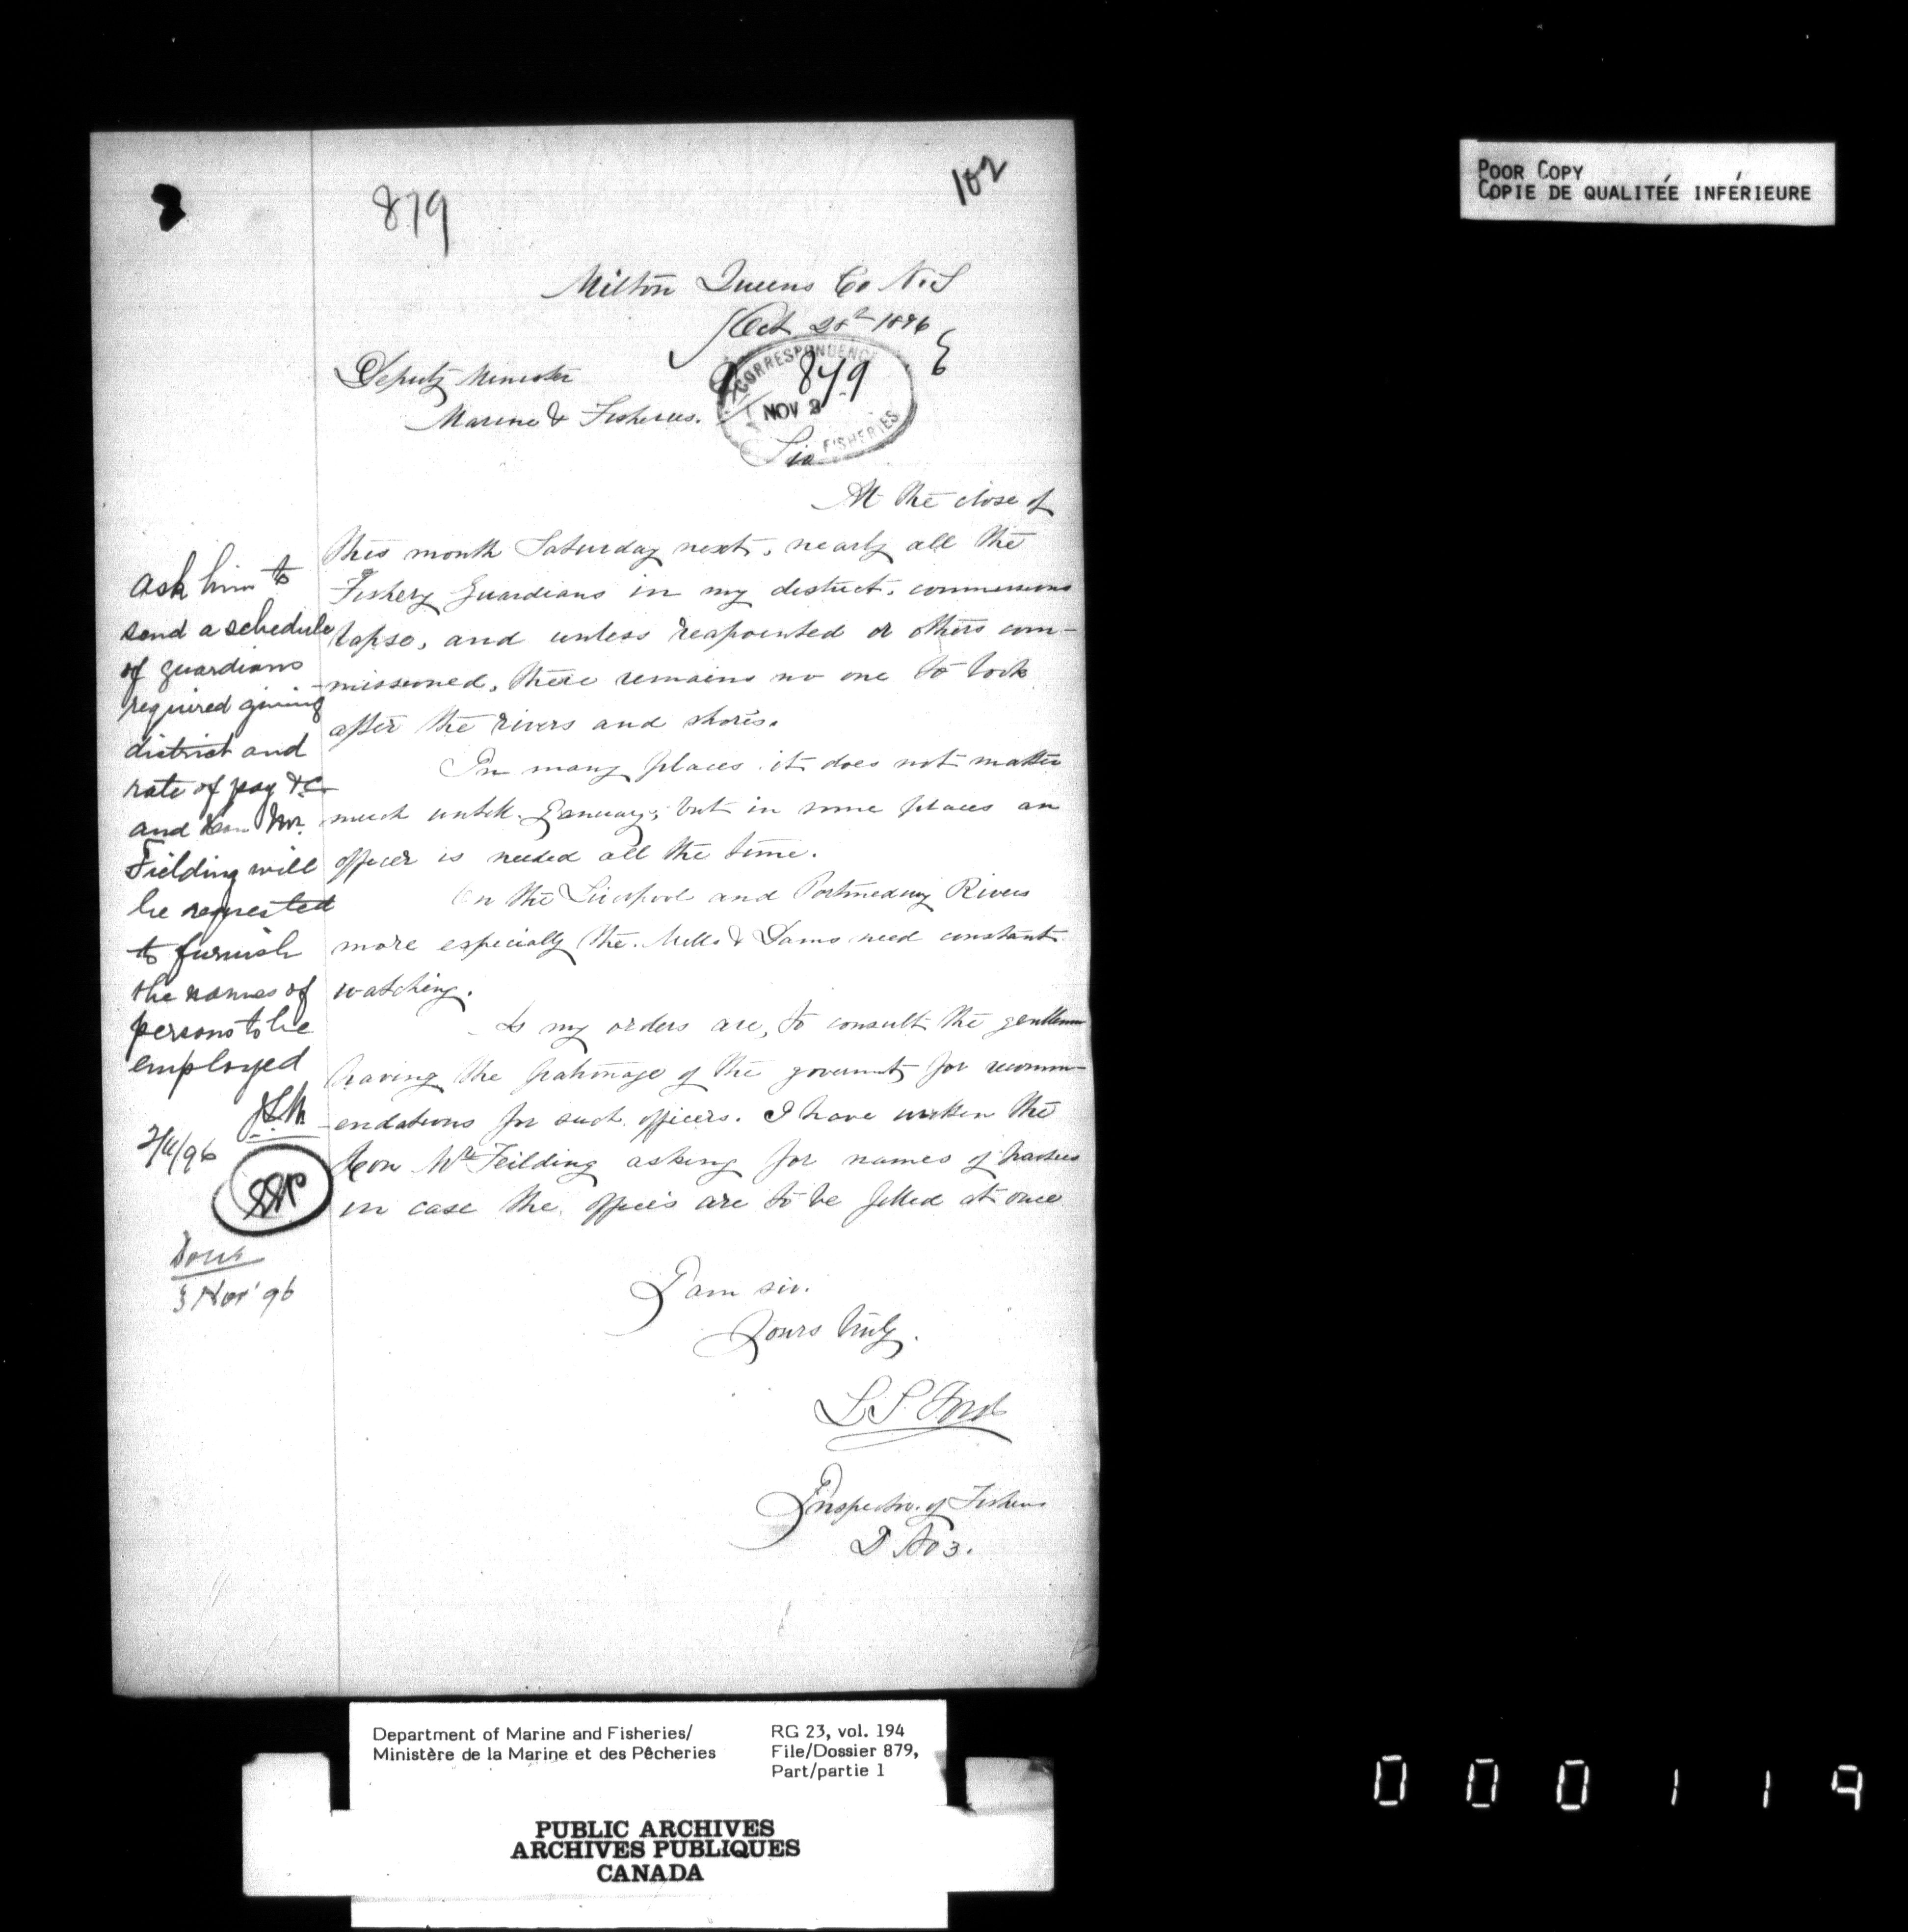 102
879
Milton Queens Co N.S
Oct 28th 1896
Deputy Minister
Marine & Fisheries.
CORRESPONDENCE
879
NOV 2
FISHERIES
Sir
At the close of
this month Saturday next, nearly all the
Fishery Guardians in my district, commissions
lapse, and unless reapointed or others com-
missioned, there remains no one to look
after the rivers and shores.
In many places it does not matter
much untill January; but in some places an
officer is needed all the time.
On the Liverpool and Portmedway Rivers
more especially the Mills & Dams need constant
watching.
As my orders are, to consult the gentlemen
having the patronage of the goverment for recomm-
endations for such officers. I have written the
Hon Mr Feilding asking for names of parties
in case the offices are to be filled at once
I am sir.
Yours truly.
L S Ford
Inspector of Fisheries
D No 3.
Ask him to
send a schedule
of guardians
required giving
district and
rate of pay &c
and Hon Mr.
Fielding will
be requested
to furnish
the names of
persons to be
employed
2/11/96
Done
3 Nov' 96
POOR COPY
COPIE DE QUALITÉE INFÉRIEURE
Department of Marine and Fisheries/
Ministère de la Marine et des Pêcheries
RG 23, vol. 194
File/Dossier 879,
Part/partie 1
PUBLIC ARCHIVES
ARCHIVES PUBLIQUES
CANADA
000119